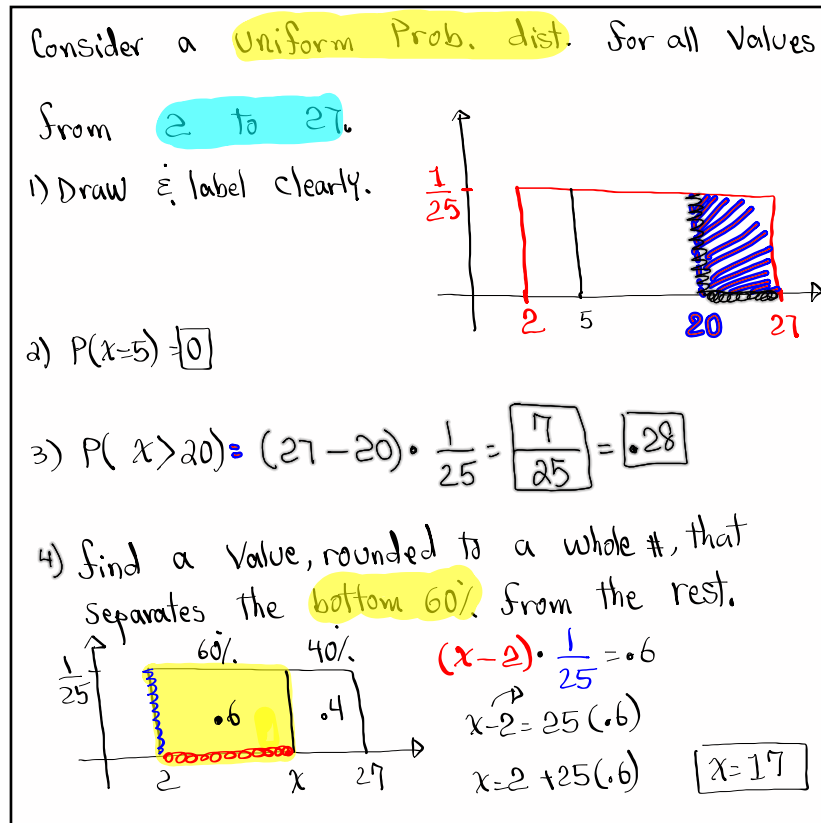 Consider a Uniform Prob. dist. for all Values
from 2 to 27.
1) Draw & label clearly.
1/25
2 5 20 27
2) P(x=5) = 0
3) P( x>20) = (27-20) · 1/25 = 7/25 = .28
4) find a Value, rounded to a whole #, that
separates the bottom 60% from the rest.
60% 40%
1/25
.6 .4
2 x 27
(x-2) · 1/25 = .6
x-2 = 25(.6)
x=2 +25(.6)
x=17